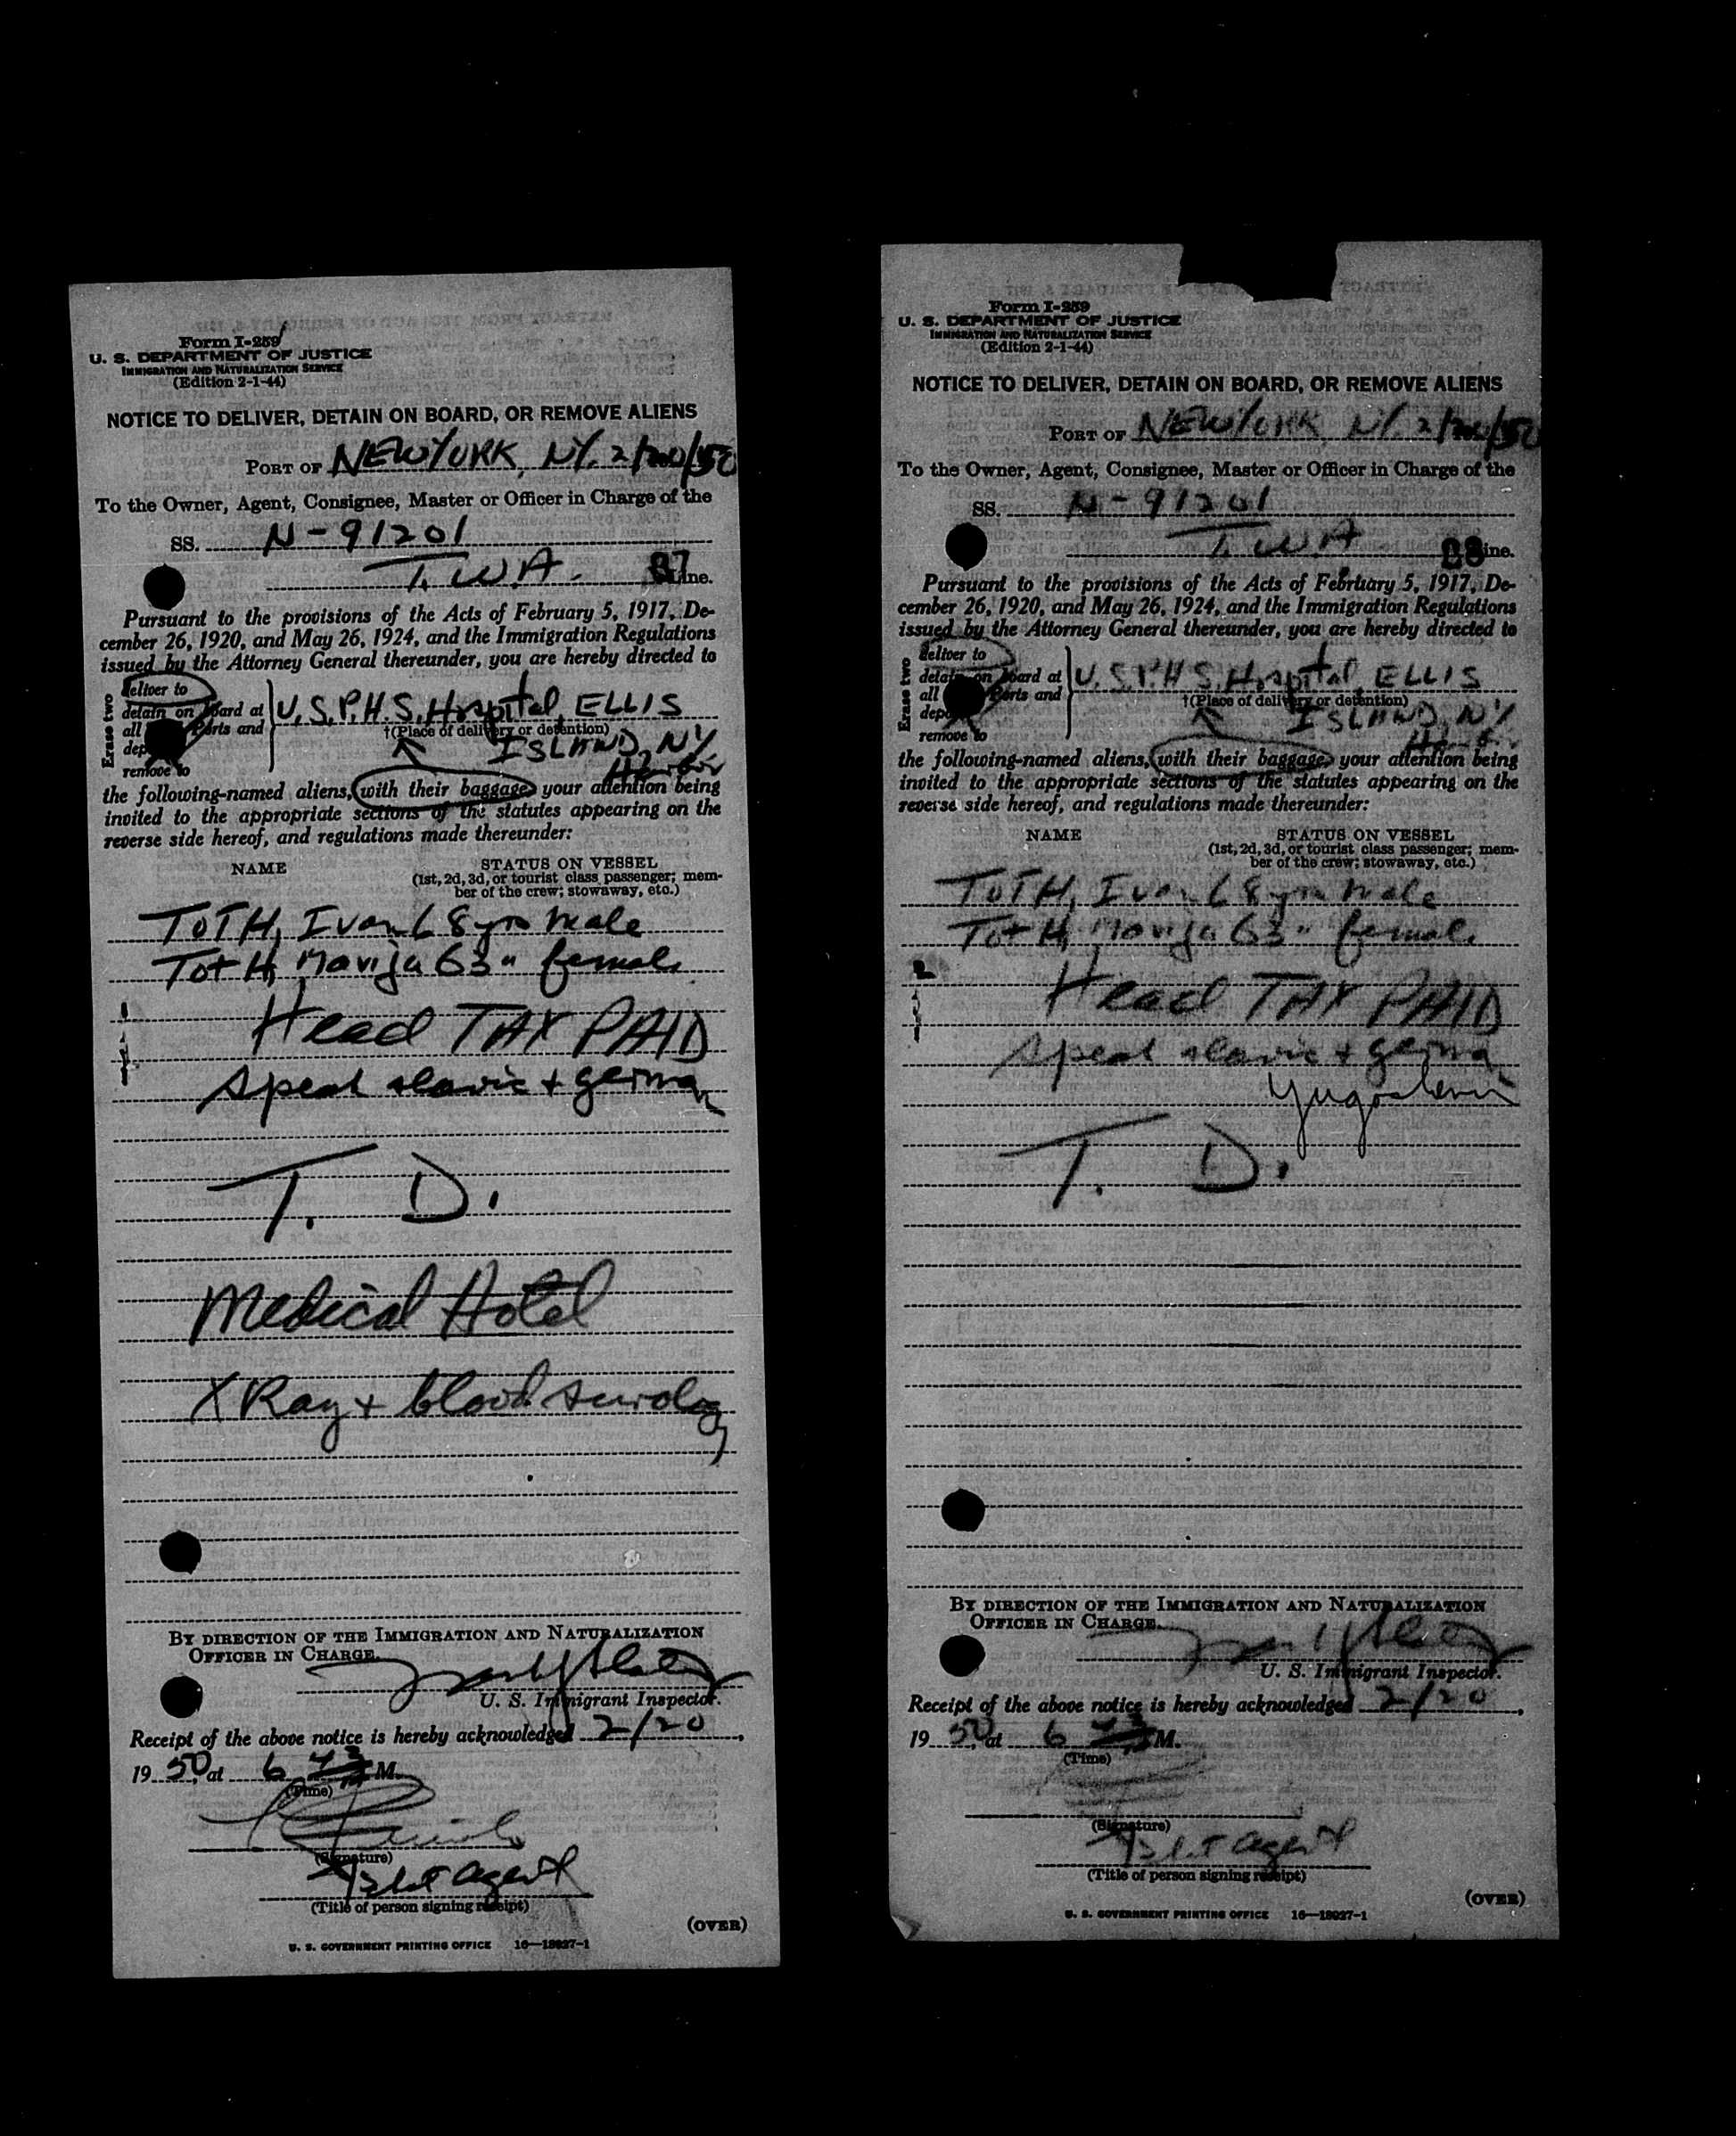 Form I-259
U. S. DEPARTMENT OF JUSTICE
IMMIGRATION AND NATURALIZATION SERVICE
(Edition 2-1-44)
NOTICE TO DELIVER, DETAIN ON BOARD, OR REMOVE ALIENS
PORT OF NEW YORK, NY. 2/20/50
To the Owner, Agent, Consignee, Master or Officer in Charge of the
SS. N-91201
T.W.A. Line.
Pursuant to the provisions of the Acts of February 5, 1917, De-
cember 26, 1920, and May 26, 1924, and the Immigration Regulations
issued by the Attorney General thereunder, you are hereby directed to
Erase two
deliver to
detain on board at
all ports and
remove to
U.S.P.H.S. Hospital, ELLIS
†(Place of delivery or detention)
ISLAND, NY
the following-named aliens, with their baggage, your attention being
invited to the appropriate sections of the statutes appearing on the
reverse side hereof, and regulations made thereunder:
NAME STATUS ON VESSEL
(1st, 2d, 3d, or tourist class passenger; mem-
ber of the crew; stowaway, etc.)
TOTH, Ivan 68 yrs male
TotH, Marija 63 " female
Head TAX PAID
Speak slavic + german
T. D.
Medical Hotel
X Ray + blood serology
BY DIRECTION OF THE IMMIGRATION AND NATURALIZATION
OFFICER IN CHARGE.
U. S. Immigrant Inspector.
Receipt of the above notice is hereby acknowledged 2/20,
1950, at 6 M.
(Time)
(Signature)
agent
(Title of person signing receipt)
(OVER)
U. S. GOVERNMENT PRINTING OFFICE 16—18927-1
Form I-259
U. S. DEPARTMENT OF JUSTICE
IMMIGRATION AND NATURALIZATION SERVICE
(Edition 2-1-44)
NOTICE TO DELIVER, DETAIN ON BOARD, OR REMOVE ALIENS
PORT OF NEW YORK, NY. 2/20/50
To the Owner, Agent, Consignee, Master or Officer in Charge of the
SS. N-91201
T.W.A Line.
Pursuant to the provisions of the Acts of February 5, 1917, De-
cember 26, 1920, and May 26, 1924, and the Immigration Regulations
issued by the Attorney General thereunder, you are hereby directed to
Erase two
deliver to
detain on board at
all ports and
remove to
U.S.P.H.S. Hospital, ELLIS
†(Place of delivery or detention)
ISLAND, NY
the following-named aliens, with their baggage, your attention being
invited to the appropriate sections of the statutes appearing on the
reverse side hereof, and regulations made thereunder:
NAME STATUS ON VESSEL
(1st, 2d, 3d, or tourist class passenger; mem-
ber of the crew; stowaway, etc.)
TOTH, Ivan 68 yrs male
TotH, Marija 63 " female
Head TAX PAID
Speak slavic + german
T. D.
BY DIRECTION OF THE IMMIGRATION AND NATURALIZATION
OFFICER IN CHARGE.
U. S. Immigrant Inspector.
Receipt of the above notice is hereby acknowledged 2/20,
1950, at 6 M.
(Time)
(Signature)
agent
(Title of person signing receipt)
(OVER)
U. S. GOVERNMENT PRINTING OFFICE 16—18927-1